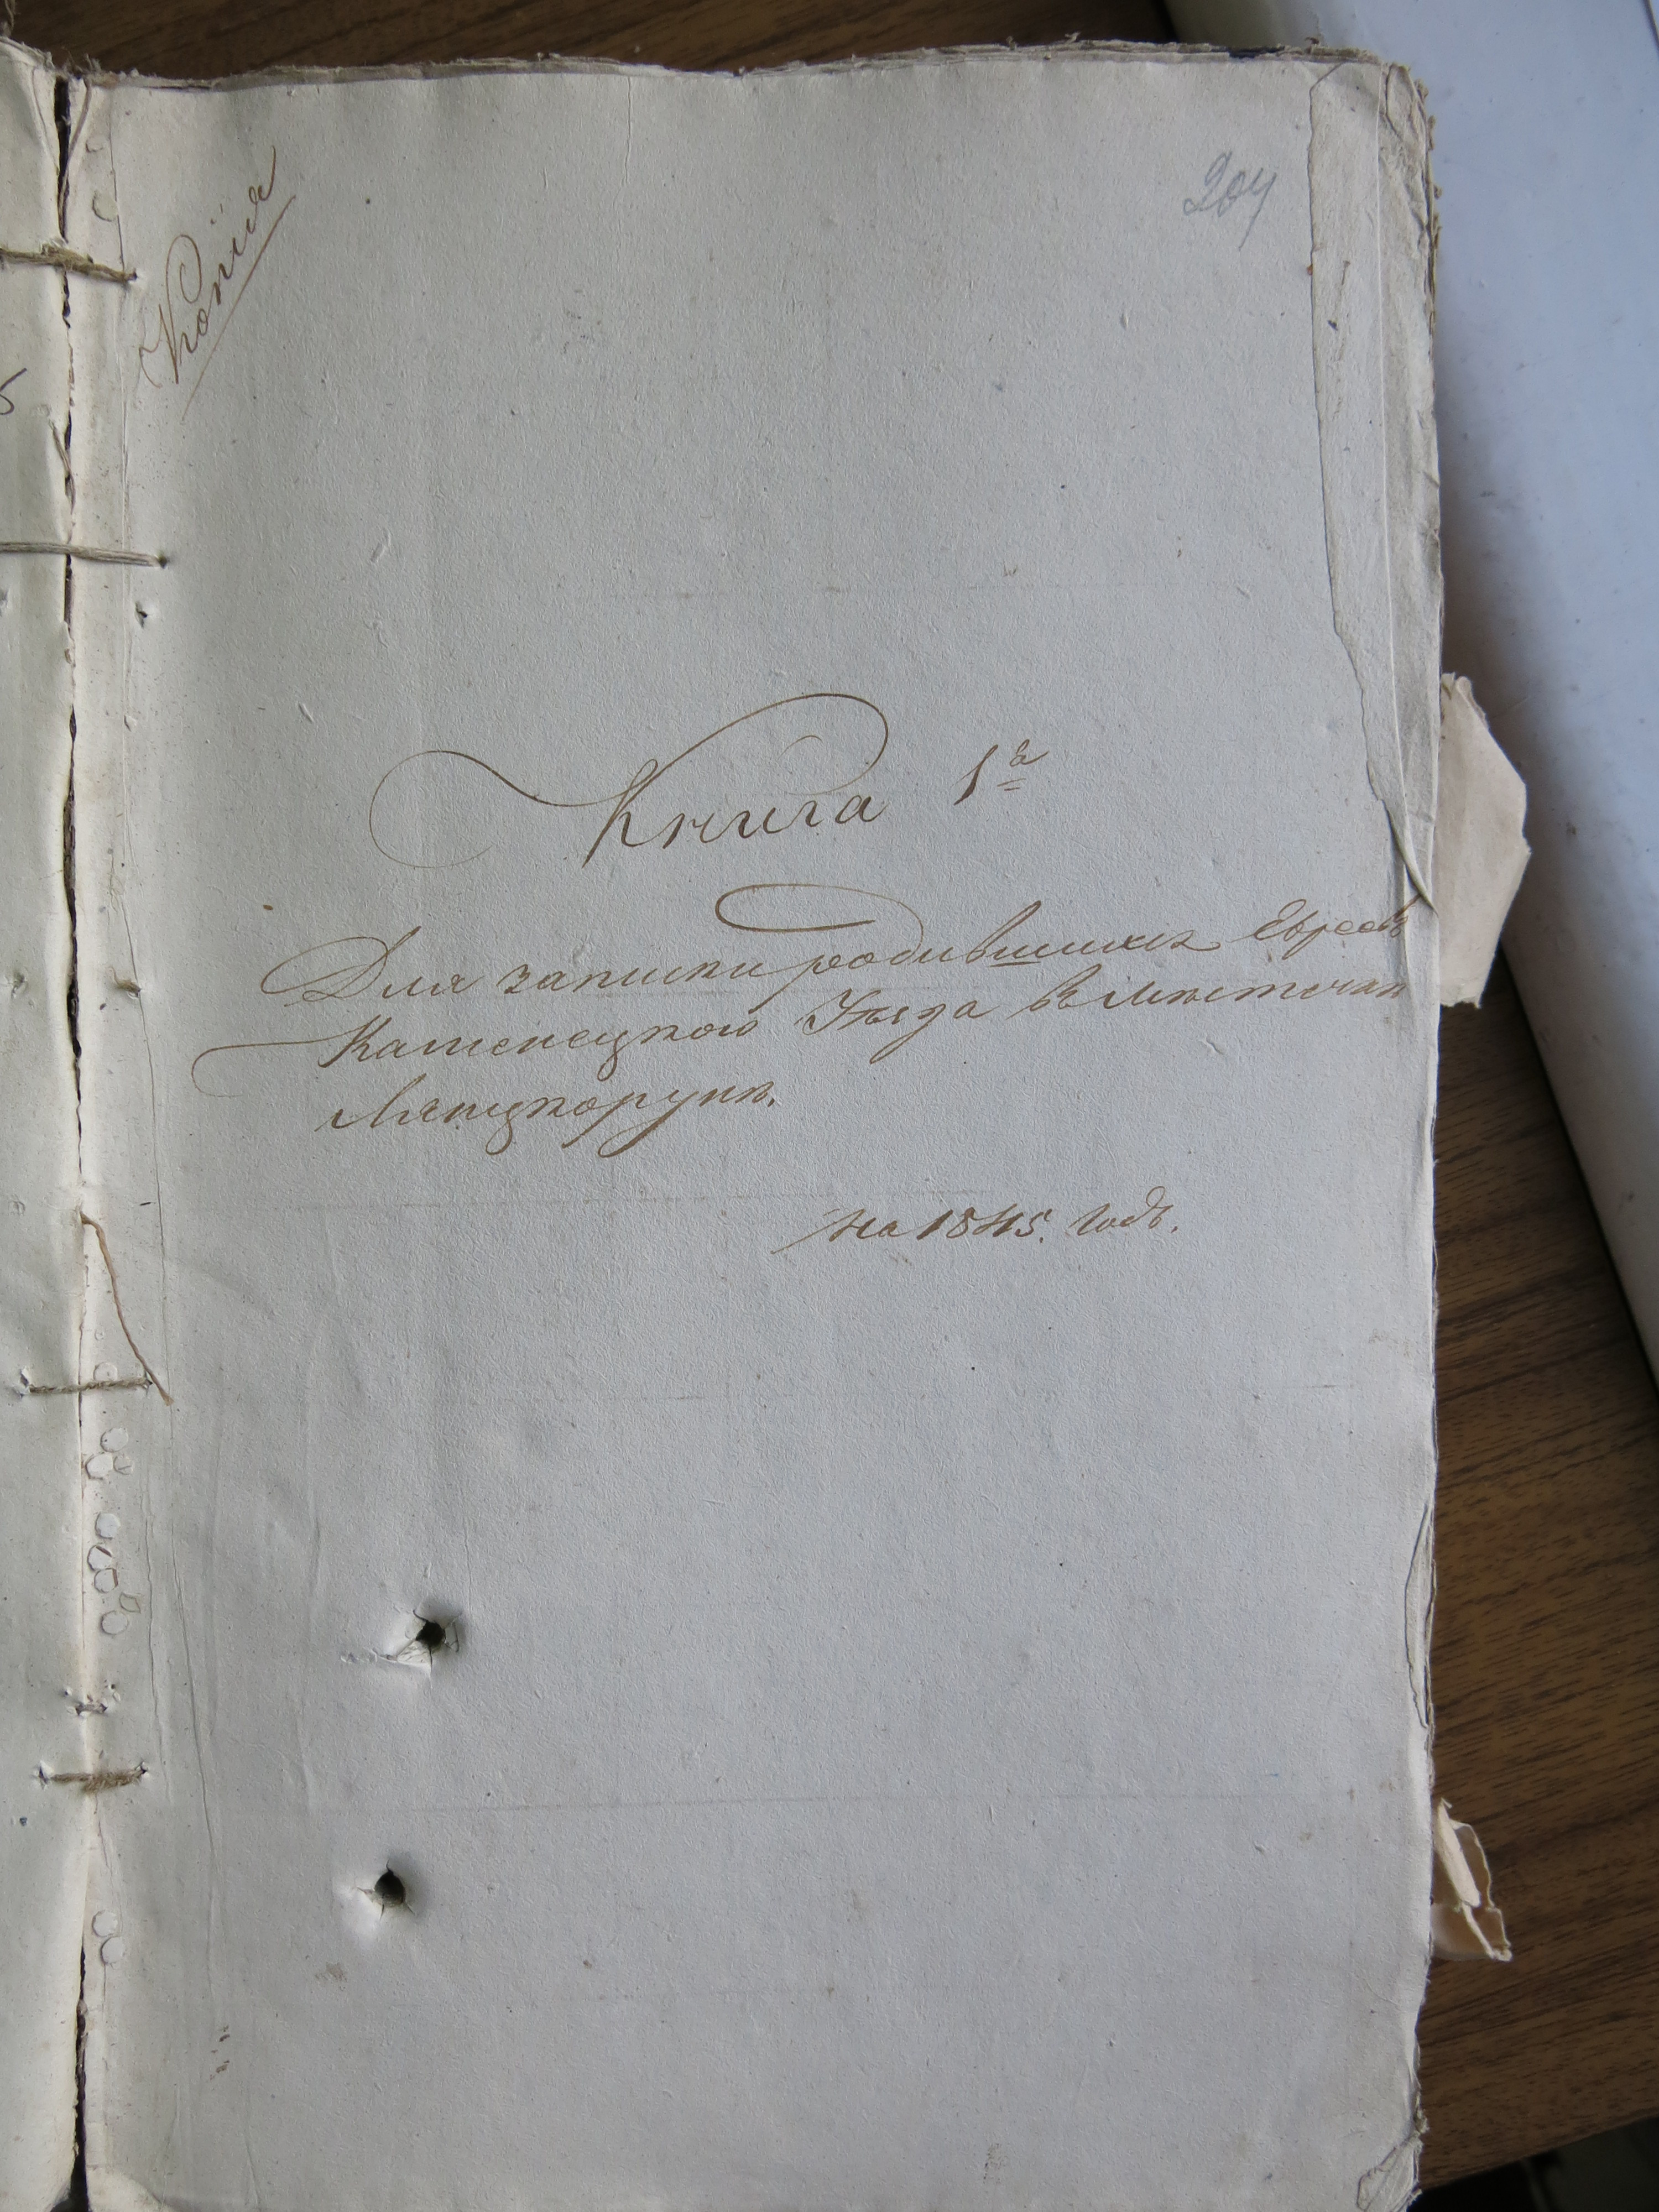 Копія
204
Книга 1я
Для записки родившихся Евреевъ
Каменецкого Уѣзда въ Мѣстечкѣ
Лянцкорунѣ.
на 1845. Годъ.
5